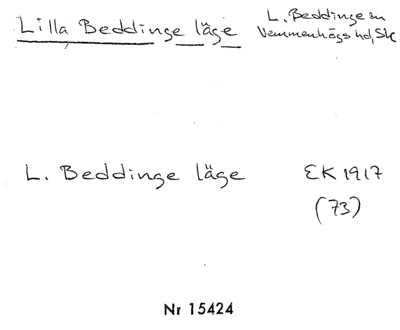 Lilla Beddinge läge
L. Beddinge sn
Vemmenhögs hd, Sk
L. Beddinge läge
EK 1917
(73)
Nr 15424